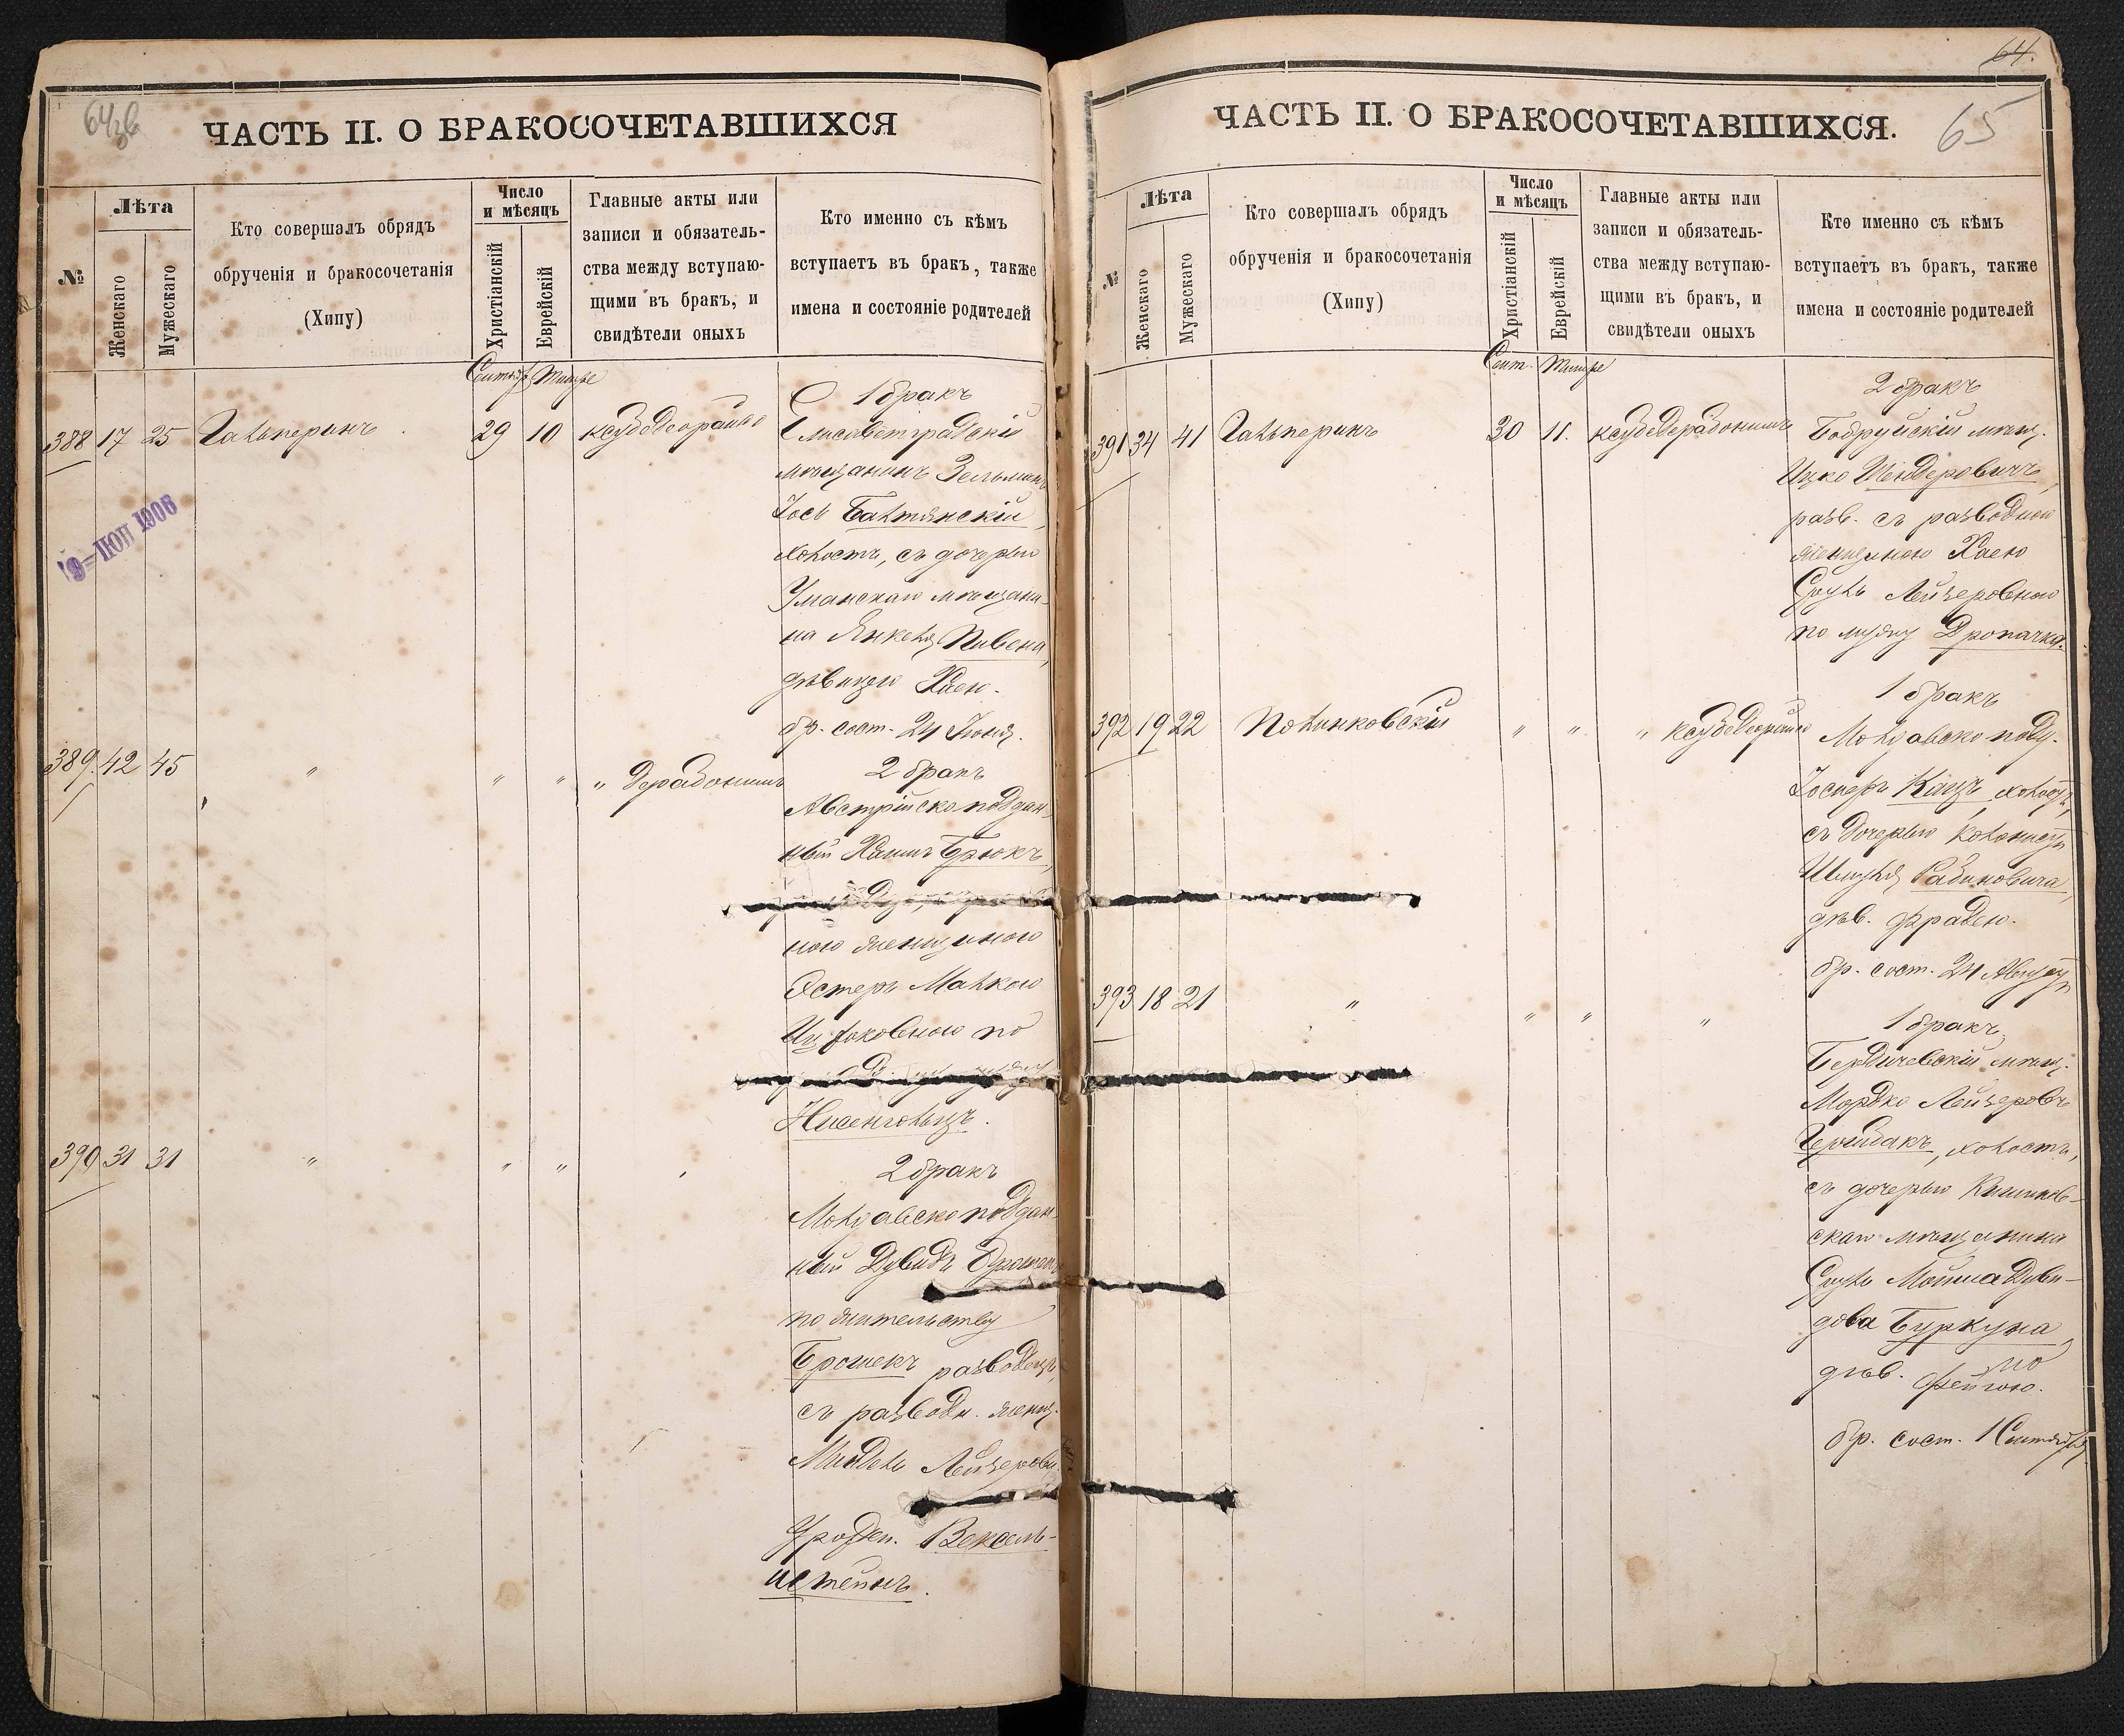 64 об
ЧАСТЬ II. О БРАКОСОЧЕТАВШИХСЯ
№
Лѣта
Женскаго
Мужескаго
Кто совершалъ обрядъ
обрученія и бракосочетанія
(Хипу)
Число
и мѣсяцъ
Христіанскій
Еврейскій
Главные акты или
записи и обязатель-
ства между вступаю-
щими въ бракъ, и
свидѣтели оныхъ
Кто именно съ кѣмъ
вступаетъ въ бракъ, также
имена и состояніе родителей
Тишре
388 17 25 Гальперинъ 29 10
1 бракъ
Елисаветградскій
мѣщанинъ Зельманъ
Іось Балтянскій,
холостъ, съ дочерью
Уманскаго мѣщани-
на Янкеля Пивена,
дѣвицею Хаею.
бр. сост. 24 Іюня.
389. 42 45 " " " "
2 бракъ
Австрійско поддан-
ный Хаимъ Брюкъ,
ною женщиною
Эстеръ Малкою
по
Нисенгольцъ.
390 31 31 " " "
2 бракъ
Молдавско поддан-
ный Дувидъ
по жительству
Брошекъ разведецъ,
съ разводн. женщ.
Лейзеров
урожден. Вексель-
штейнъ.
64.
65
ЧАСТЬ II. О БРАКОСОЧЕТАВШИХСЯ.
№
Лѣта
Женскаго
Мужескаго
Кто совершалъ обрядъ
обрученія и бракосочетанія
(Хипу)
Число
и мѣсяцъ
Христіанскій
Еврейскій
Главные акты или
записи и обязатель-
ства между вступаю-
щими въ бракъ, и
свидѣтели оныхъ
Кто именно съ кѣмъ
вступаетъ въ бракъ, также
имена и состояніе родителей
Сент. Тишре
391 34 41 Гальперинъ 30 11.
2 бракъ
Бобруйскій мѣщ.
Ицко Шендеровичъ,
разв. съ разводною
женщиною Хаею
Суль Лейзеровною
по мужу
392 19 22 Полинковскій " " "
1 бракъ
Молдавско подд.
Іосифъ Кацъ, холостъ,
съ дочерью колониста
Шмуля Рабиновича,
дѣв. Фрадею.
бр. сост. 24 Августа
393 18 21 " " " "
1 бракъ
Бердичевскій мѣщ.
Мордко Лейзеровъ
холостъ,
съ дочерью Кишинев-
скаго мѣщанина
Сруль Мойша Дуви-
дова Буркуна,
дѣв. Фейгою.
бр. сост. 1 Сентября